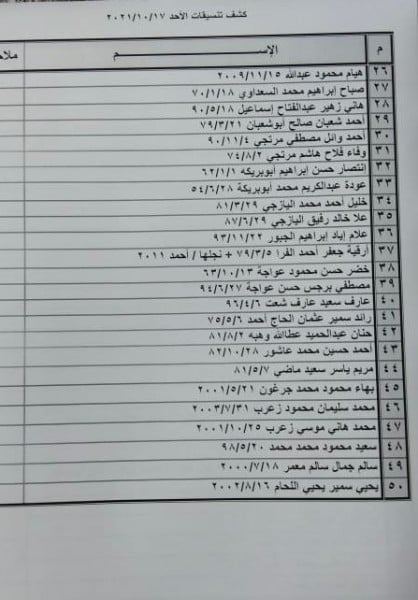 كشف تنسيقات الأحد ٢٠٢١/١٠/١٧
م الإســـــــم ملاح
٢٦ هيام محمود عبدالله ٢٠٠٩/١١/١٥
٢٧ صباح إبراهيم محمد السعداوي ٧٠/١/١٨
٢٨ هاني زهير عبدالفتاح إسماعيل ٩٠/٥/١٨
٢٩ أحمد شعبان صالح أبوشعبان ٧٩/٣/٢١
٣٠ أحمد وائل مصطفي مرتجي ٩٠/١١/٤
٣١ وفاء فلاح هاشم مرتجي ٧٤/٨/٢
٣٢ انتصار حسن إبراهيم أبوبريكه ٦٢/١/١
٣٣ عودة عبدالكريم محمد أبوبريكة ٥٤/٦/٢٨
٣٤ خليل أحمد محمد اليازجي ٨١/٣/٢٩
٣٥ علا خالد رفيق اليازجي ٨٧/٦/٢٩
٣٦ علام إياد إبراهيم الجبور ٩٣/١١/٢٢
٣٧ أرقية جعفر أحمد الفرا ٧٩/٣/٥ + نجلها / أحمد ٢٠١١
٣٨ خضر حسن محمود عواجة ٦٣/١٠/١٣
٣٩ مصطفي برجس حسن عواجة ٩٤/٦/٢٧
٤٠ عارف سعيد عارف شعت ٩٦/٤/٦
٤١ رائد سمير عثمان الحاج أحمد ٧٥/٥/٦
٤٢ حنان عبدالحميد عطاالله وهبه ٨١/٨/٢
٤٣ أحمد حسين محمد عاشور ٨٢/١٠/٢٨
٤٤ مريم ياسر سعيد ماضي ٨١/٥/٧
٤٥ بهاء محمود محمد جرغون ٢٠٠١/٥/٢١
٤٦ محمد سليمان محمود زعرب ٢٠٠٣/٧/٣١
٤٧ محمد هاني موسي زعرب ٢٠٠١/١٠/٢٥
٤٨ سعيد محمود محمد محمد ٩٨/٥/٢٠
٤٩ سالم جمال سالم معمر ٢٠٠٠/٧/١٨
٥٠ يحيي سمير يحيي اللحام ٢٠٠٢/٨/١٦